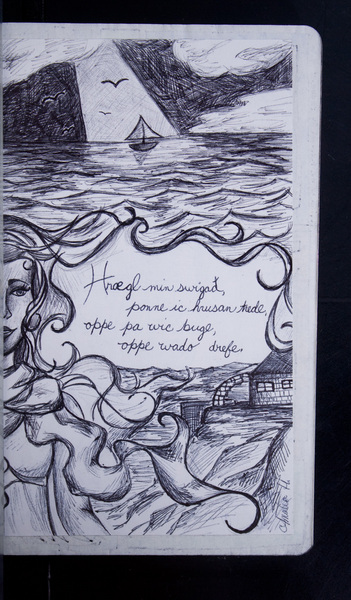 Hrægl min swigað,
ponne ic hrusan trede,
oppe pa wic buge,
oppe wado drefe.